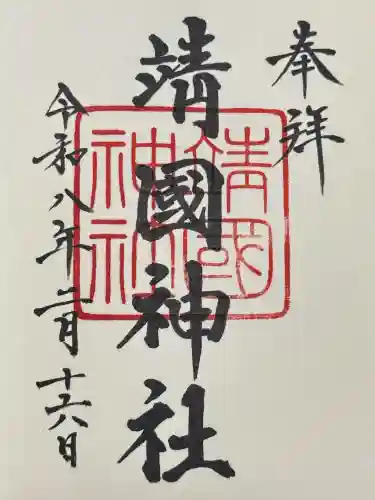 奉拝
靖國神社
靖國
神社
令和八年二月十六日